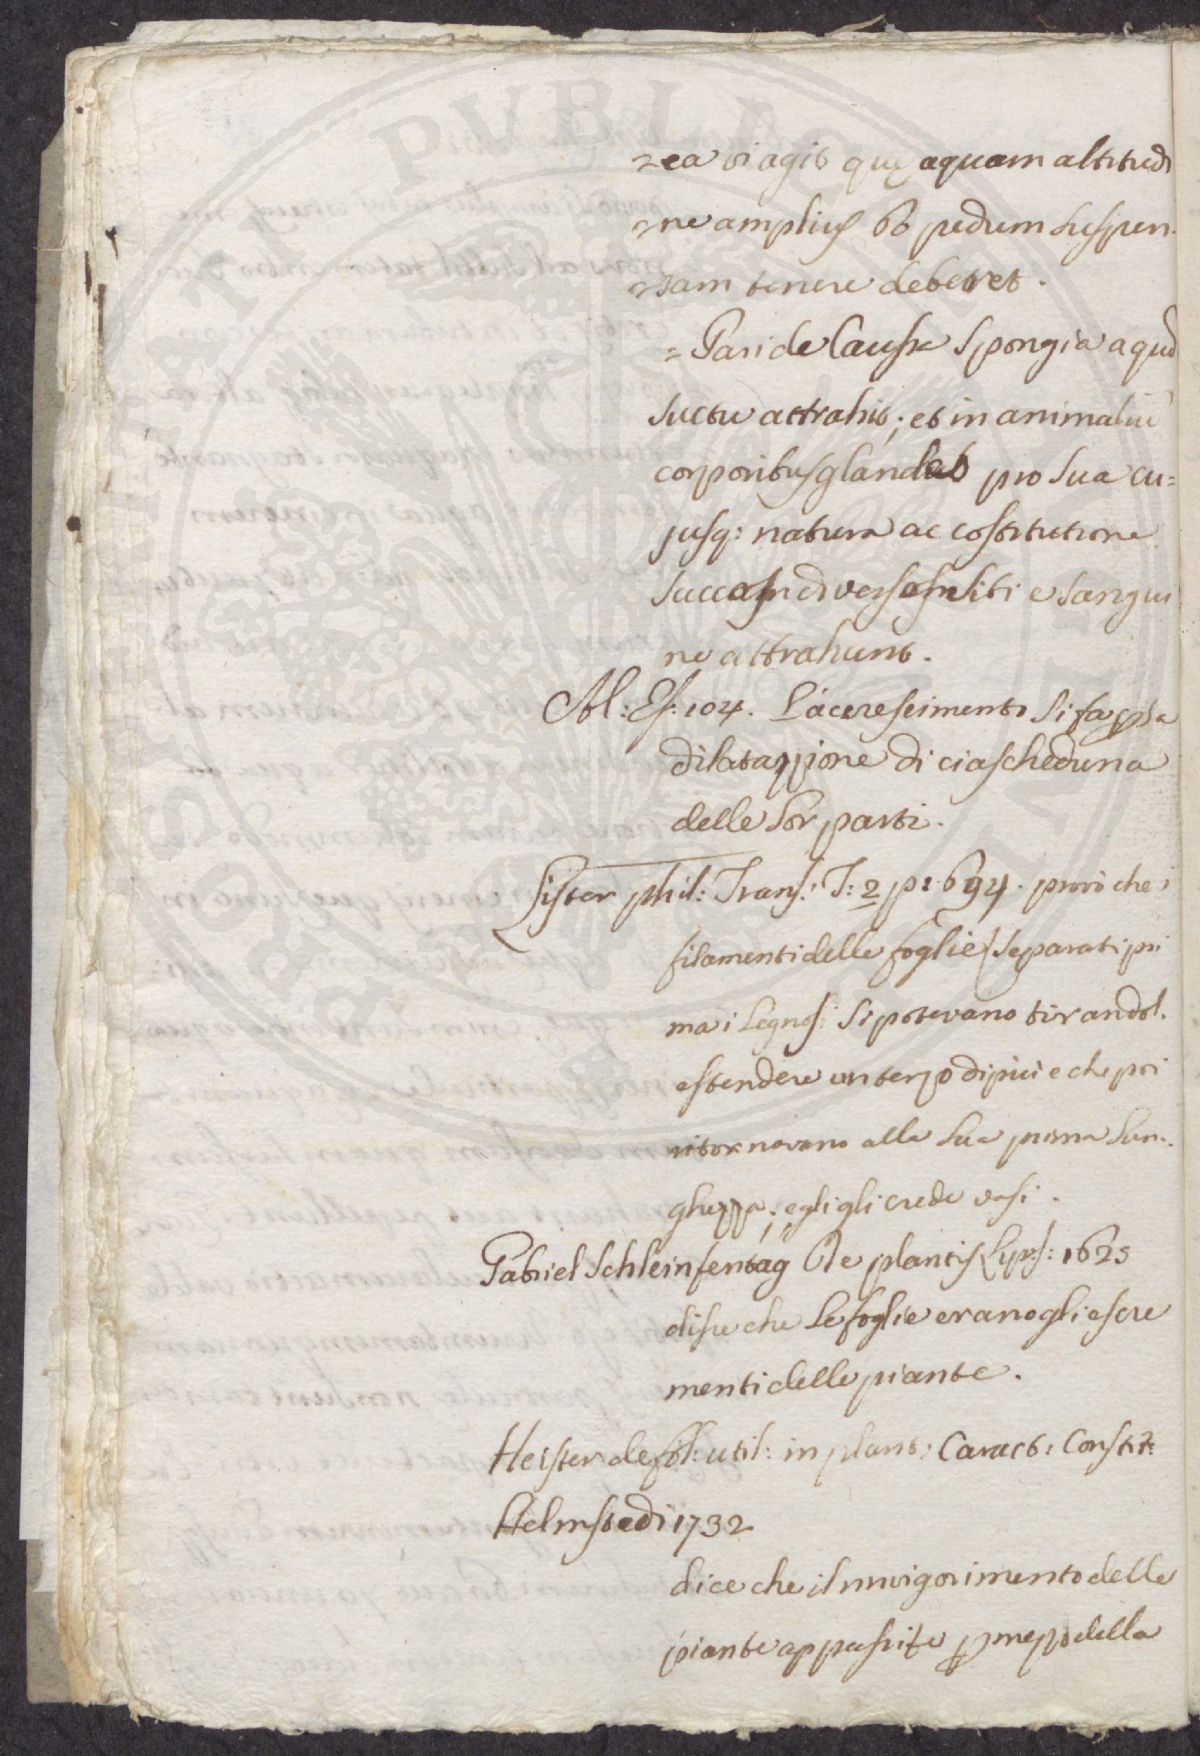 =ea vi agit quę aquam altitudi
=ne amplius 66 pedum suspen-
=sam tenere deberet.
= Pari de Causa Spongia aquā
suctu attrahit; et in animaliū
corporibus glandes pro sua cu=
jusq: natura ac costitutione
succos diversos siti e sangui
ne attrahunt.
104. L'accrescimento si fa p la
dilatazzione di ciascheduna
delle lor parti.
Lister phil: Trans: T: 2 p: 694. provò che i
filamenti delle foglie separati pri
ma i legnosi si potevano tirandol.
estendere un terzo di più e che poi
ritornavano alla sua prima lun-
ghezza; egli gli crede vasi.
Gabriel Schleinfentag De plantis Lyps: 1625
disse che le foglie erano gli escre
menti delle piante.
Heister de fol: util: in plant: Caract: Constit:
Helmstadi 1732
dice che il rinvigorimento delle
piante appassite p mezzo della